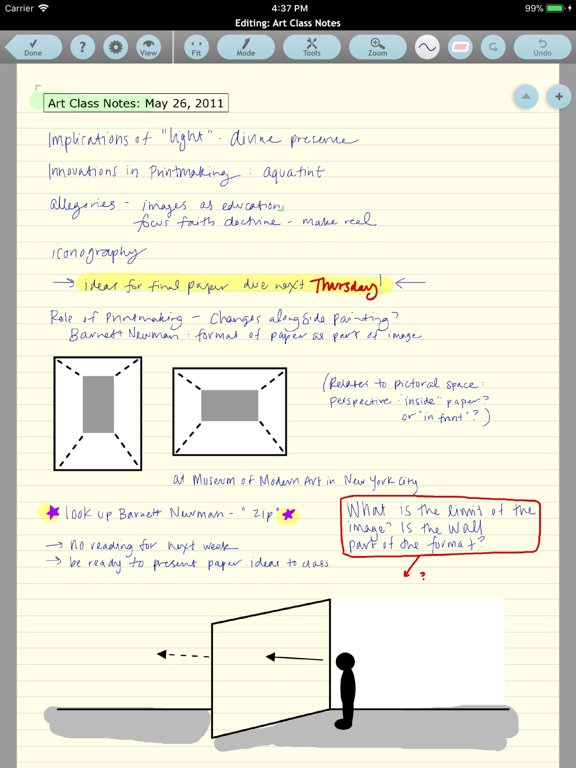 iPad 4:37 PM 99%
Editing: Art Class Notes
Done ? View Fit Mode Tools Zoom Undo
Art Class Notes: May 26, 2011
Implications of "light" - divine presence
Innovations in Printmaking : aquatint
allegories - images as education
focus faith doctrine - make real
iconography
→ ideas for final paper due next Thursday! ←
Role of Printmaking - Changes alongside painting?
Barnett Newman : format of paper as part of image
(Relates to pictoral space:
perspective "inside" paper?
or "in front"?)
at Museum of Modern Art in New York City
look up Barnett Newman - "zip"
What is the limit of the
image? Is the wall
part of the format?
→ no reading for next week
→ be ready to present paper ideas to class
?